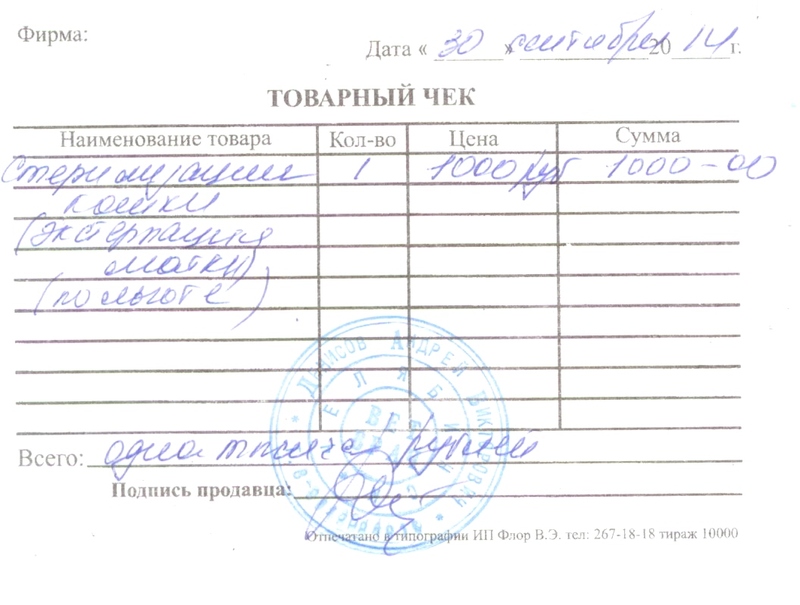 Фирма:
Дата « 30 » сентября 2014 г.
ТОВАРНЫЙ ЧЕК
Наименование товара Кол-во Цена Сумма
Стерилизация 1 1000 руб 1000-00
кошки
(экстерпация
матки)
(по льготе)
Всего: одна тысяча рублей
Подпись продавца:
Отпечатано в типографии ИП Флор В.Э. тел: 267-18-18 тираж 10000
Денисов Андрей Викторович